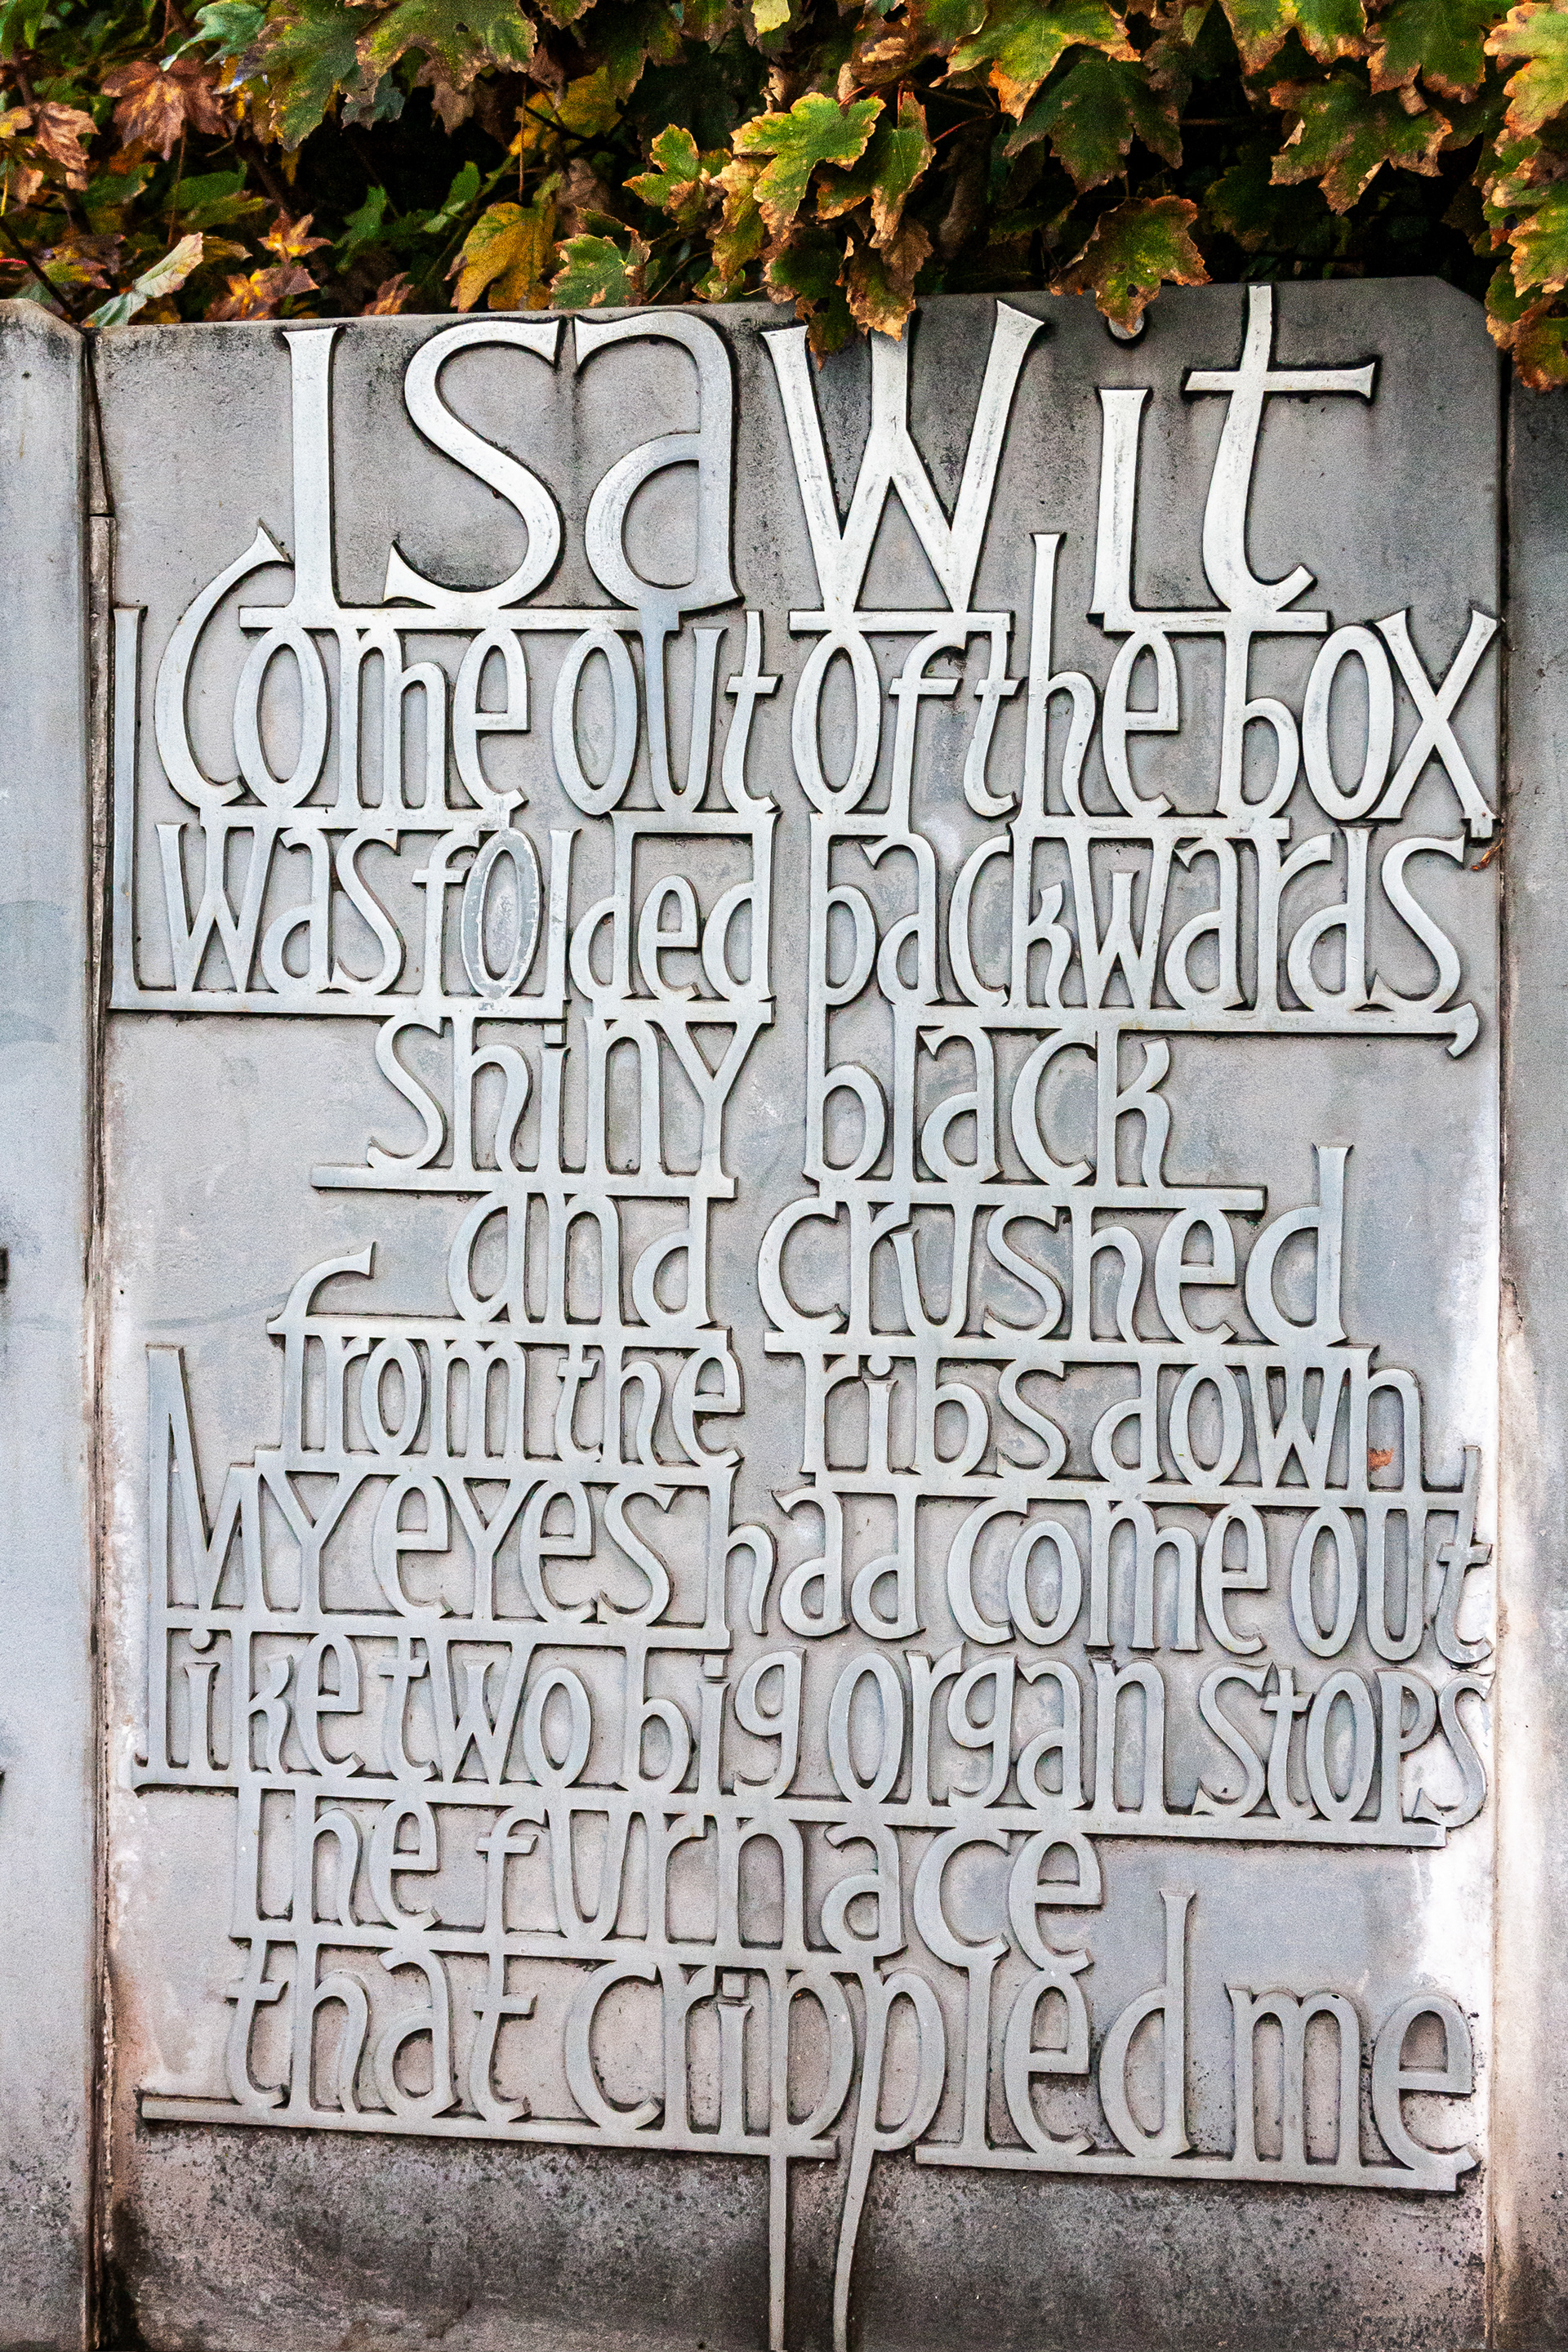 I saw it
Come out of the box,
I was folded backwards,
shiny black
and crushed
from the ribs down
My eyes had come out
like two big organ stops
The furnace
that crippled me